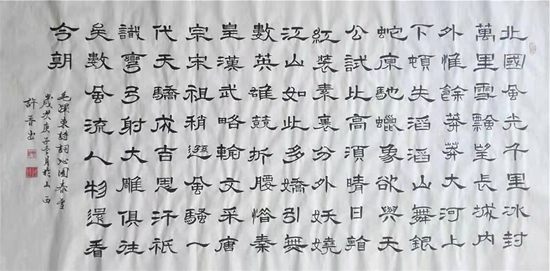 北國風光千里冰封
萬里雪飄望長城内
外惟餘莽莽大河上
下頓失滔滔山舞銀
蛇原馳蠟象欲與天
公試比高須晴日看
紅裝素裹分外妖嬈
江山如此多嬌引無
數英雄競折腰惜秦
皇漢武略輸文采唐
宗宋祖稍遜風騷一
代天驕成吉思汗祇
識彎弓射大雕俱往
矣數風流人物還看
今朝
毛澤東詩詞沁園春雪
歲次庚子冬月於山西
許晉